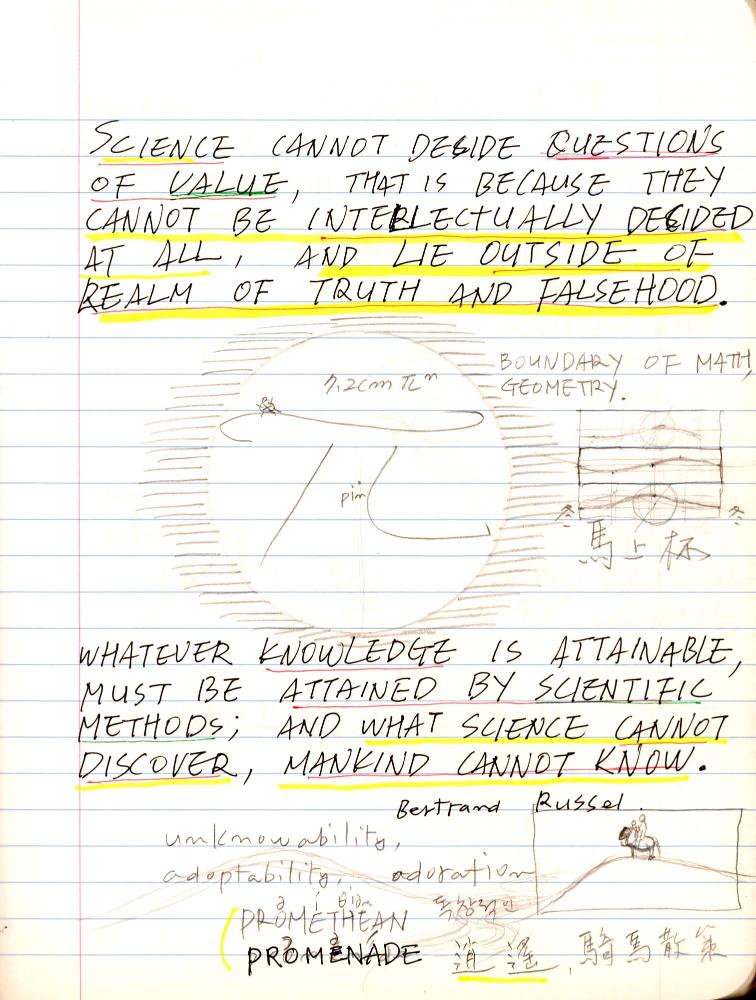 SCIENCE CANNOT DECIDE QUESTIONS
OF VALUE, THAT IS BECAUSE THEY
CANNOT BE INTELLECTUALLY DECIDED
AT ALL, AND LIE OUTSIDE OF
REALM OF TRUTH AND FALSEHOOD.
BOUNDARY OF MATH,
GEOMETRY.
7.2cm πⁿ
pin
冬 冬
馬上杯
WHATEVER KNOWLEDGE IS ATTAINABLE,
MUST BE ATTAINED BY SCIENTIFIC
METHODS; AND WHAT SCIENCE CANNOT
DISCOVER, MANKIND CANNOT KNOW.
Bertrand Russel.
unknowability,
adoptability, adoration
독창적인
PROMETHEAN
PROMENADE 逍遥, 騎馬散策